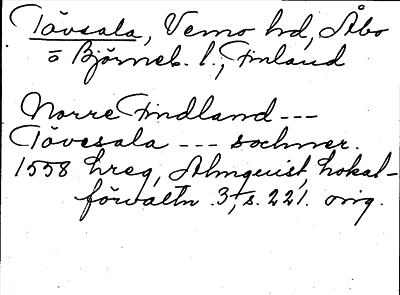 Tövsala, Vemo hd, Åbo
o Björneb. l., Finland
Norre Findland ---
Tövesala --- sochner.
1558 hreg, Almquist, Lokal-
förvaltn. 3, s. 221. orig.